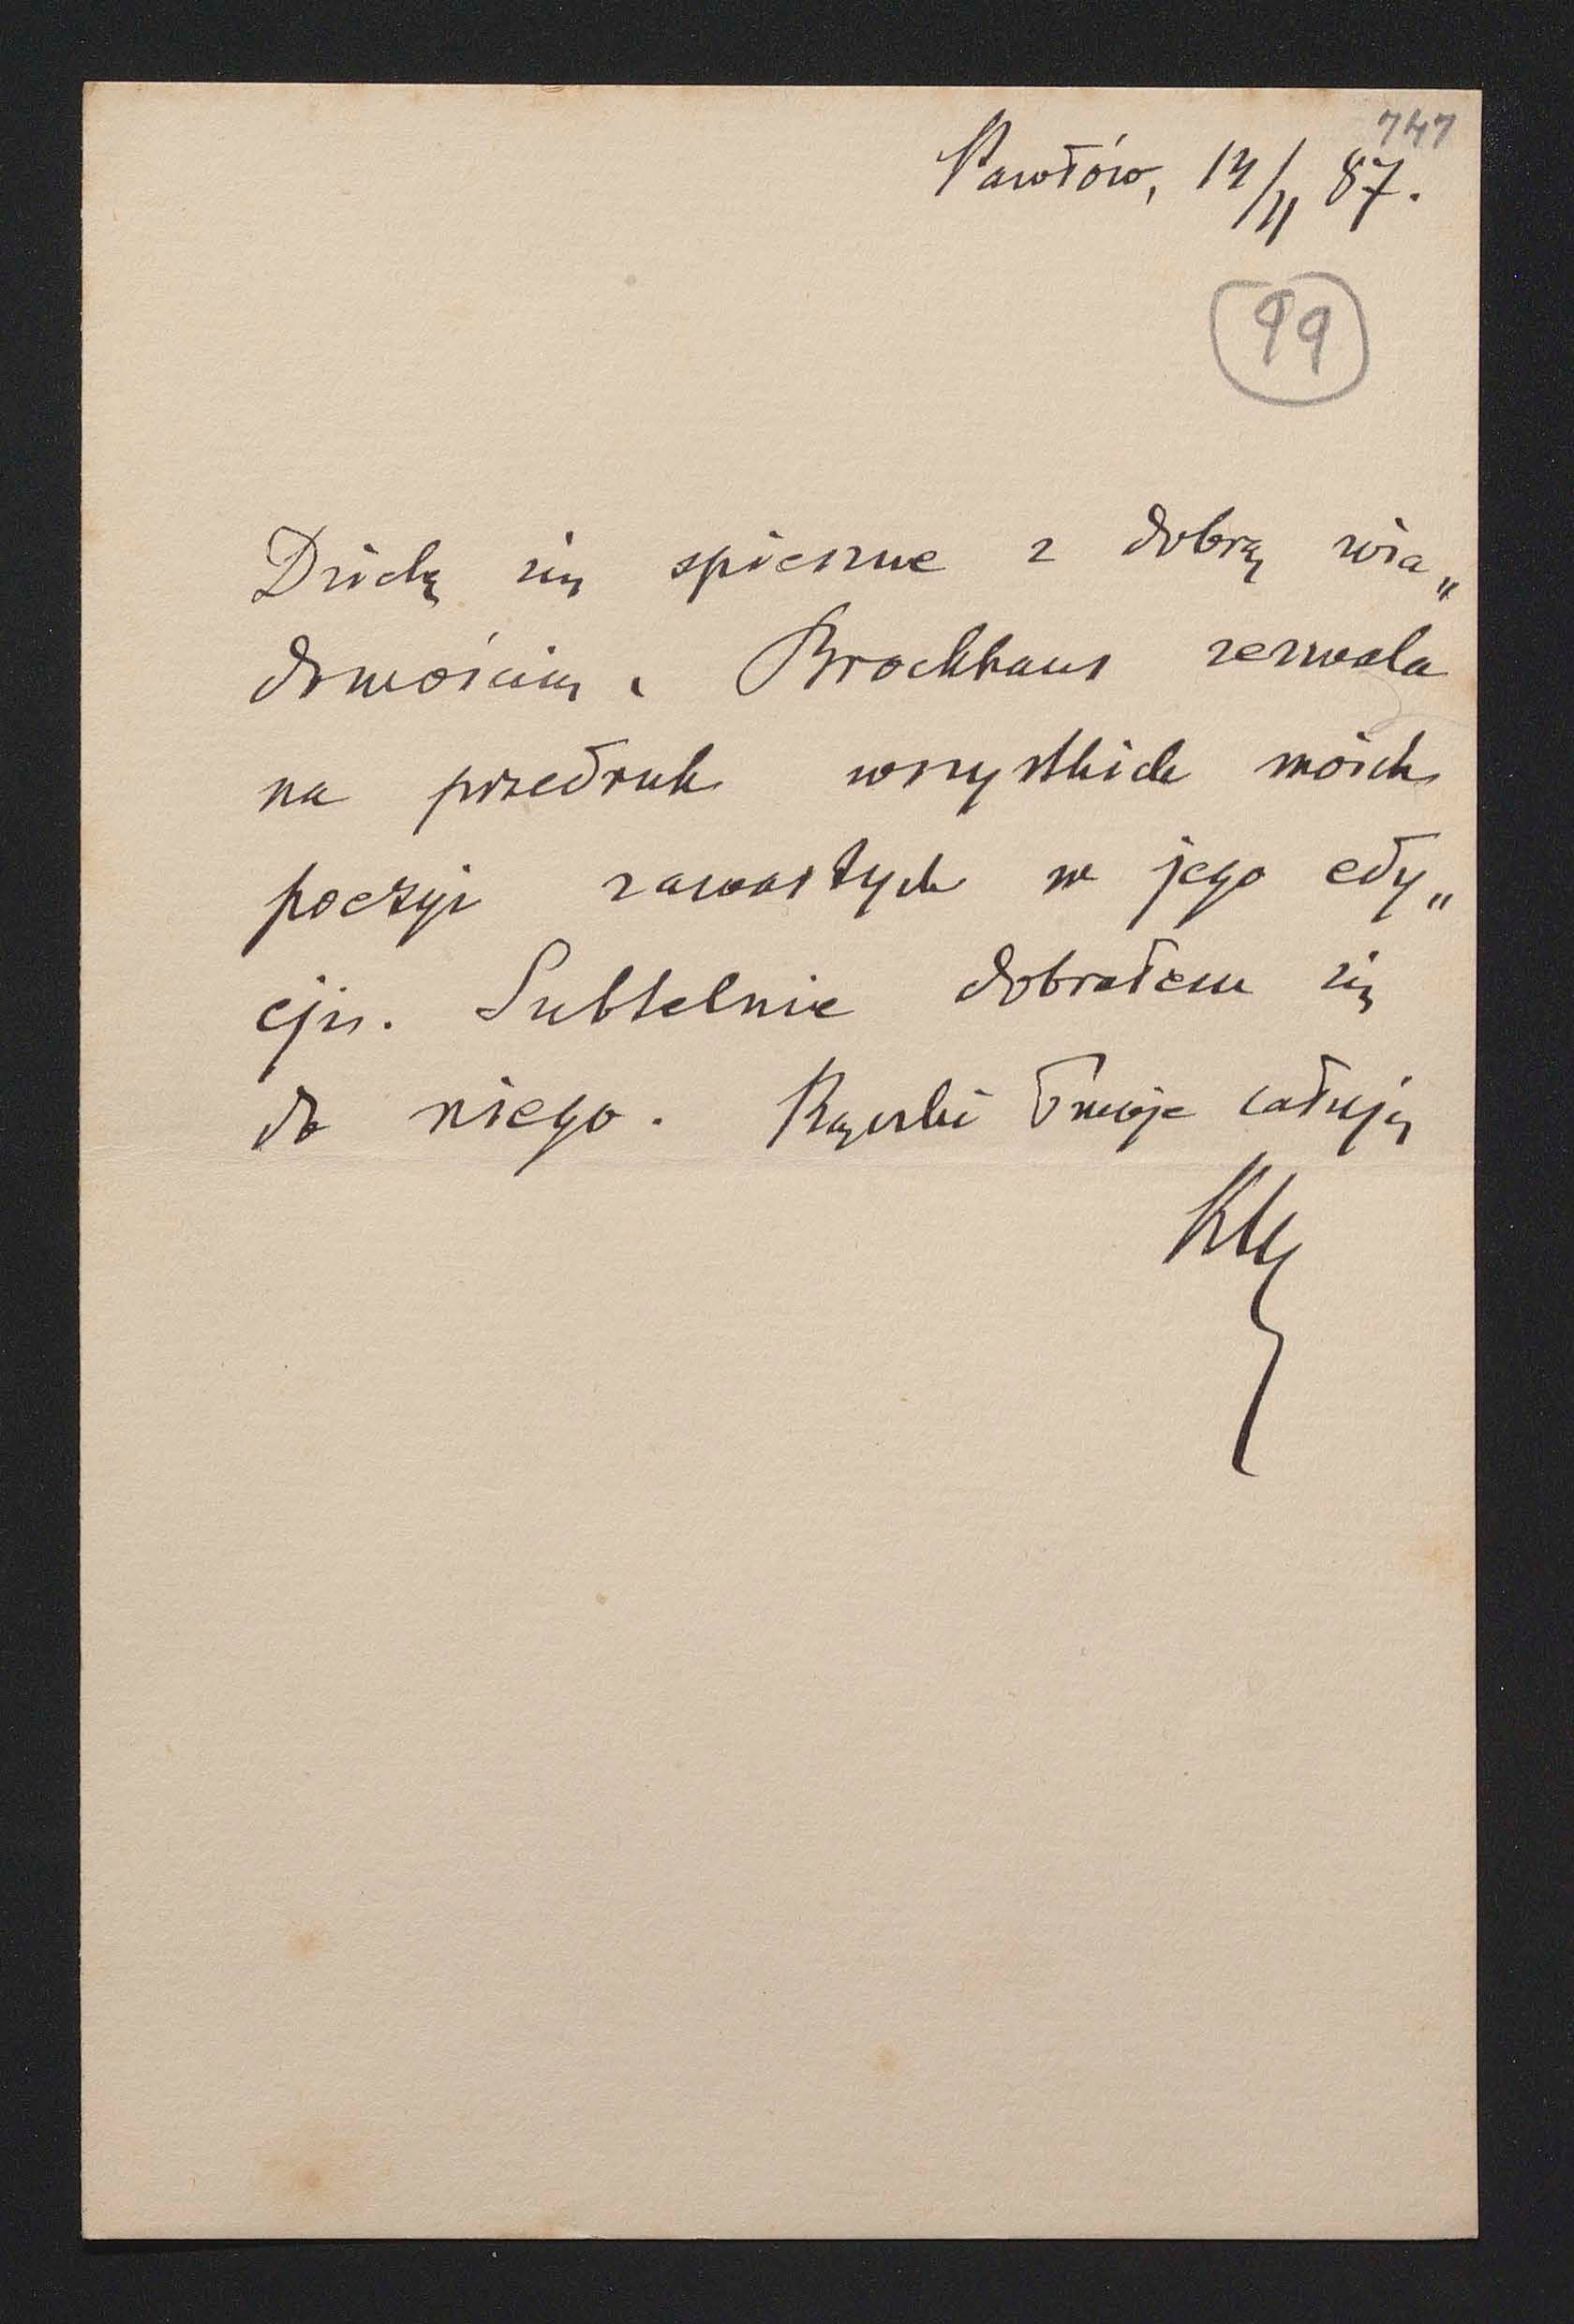 747
Pawłów, 14/II 87.
99
Dzielę się spiesznie z dobrą wia„
domością. Brockhaus zezwala
na przedruk wszystkich moich
poezyi zawartych w jego edy„
cji. Subtelnie dobrałem się
do niego. Rączki Twoje całuję